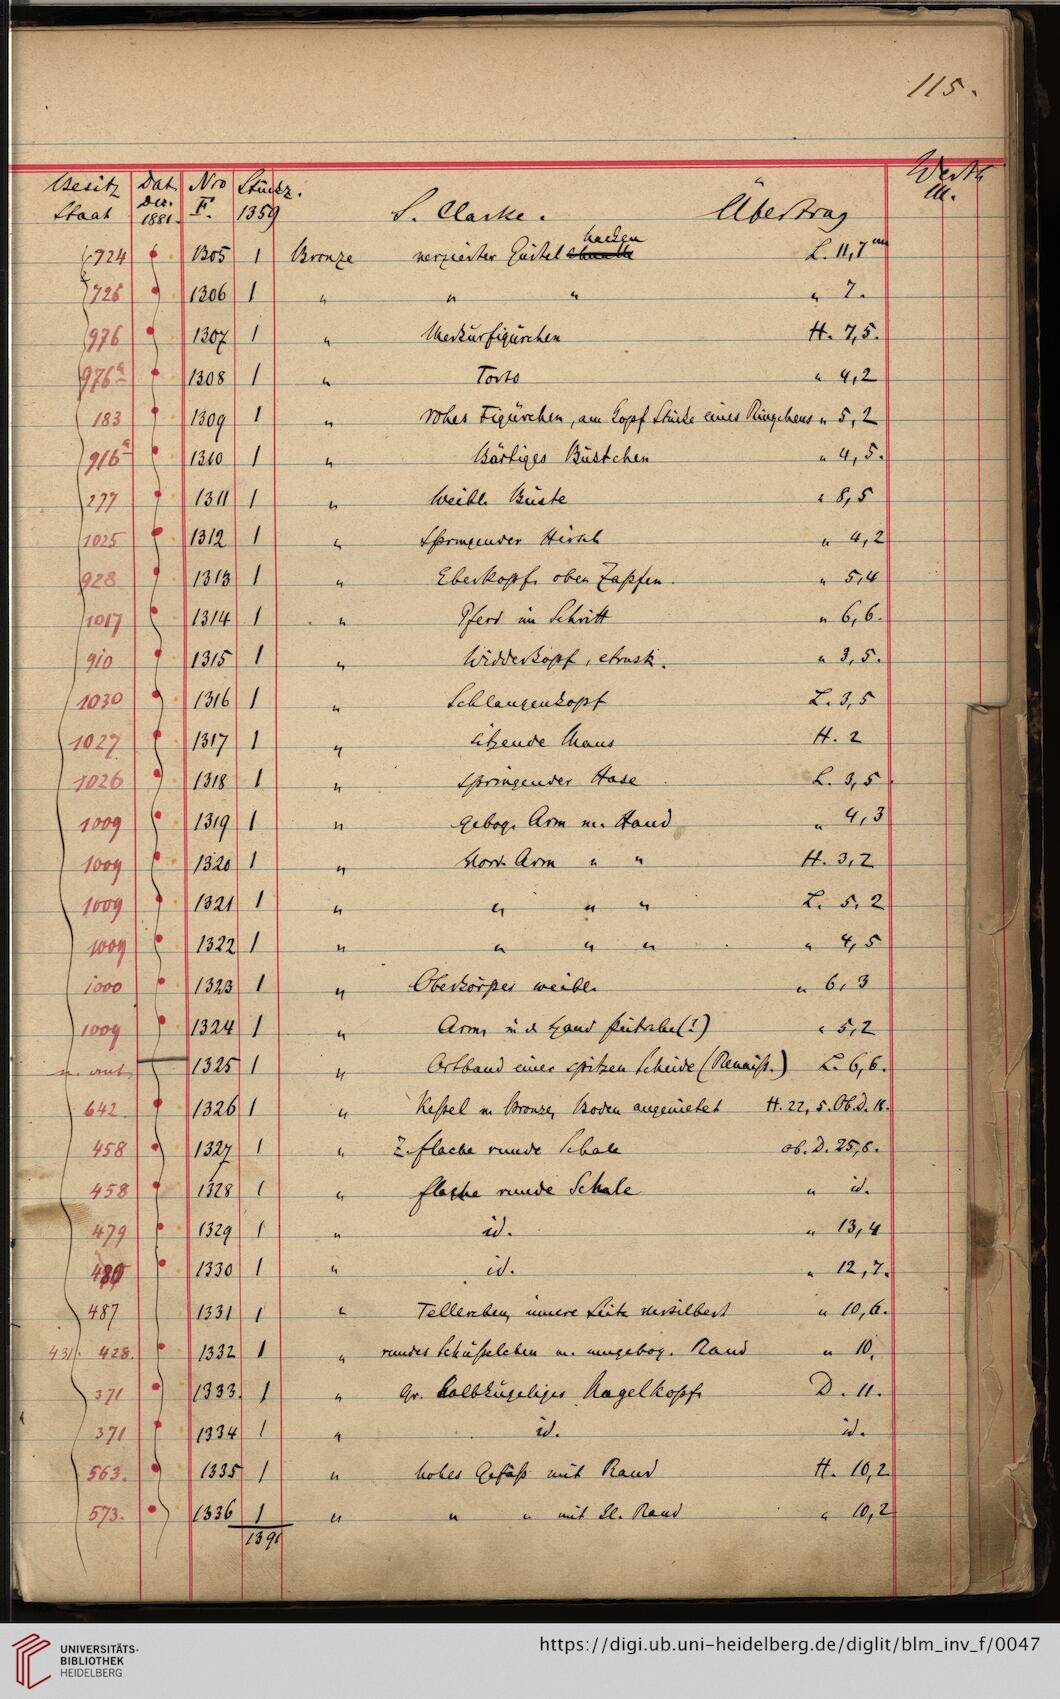 115.
Besitz Dat. Nro Stückz. Werth
Staat Dez. 1881. F. 1359 S. Clarke. Übertrag M.
724 1305 1 Bronze verzierter Gürtelhacken L. 11,7 cm
726 1306 1 " " " " 7.
976 1307 1 " Merkurfigürchen H. 7,5.
976a 1308 1 " Torso " 4,2
183 1309 1 " rohes Figürchen, am Kopf Stücke eines Ringchens " 5,2
916a 1310 1 " Bärtiges Büstchen " 4,5.
277 1311 1 " Weibl. Büste " 8,5
1025 1312 1 " Springender Hirsch " 4,2
928 1313 1 " Eberkopf, oben Zapfen. " 5,4
1017 1314 1 " Pferd im Schritt " 6,6.
910 1315 1 " Widderkopf, etrusk. " 3,5.
1030 1316 1 " Schlangenkopf L. 3,5
1027 1317 1 " sitzende Maus H. 2
1026 1318 1 " springender Hase L. 3,5
1009 1319 1 " gebog. Arm m. Hand " 4,3
1009 1320 1 " Arm " " H. 3,2
1009 1321 1 " " " " L. 5,2
1009 1322 1 " " " " " 4,5
1000 1323 1 " Oberkörper weibl. " 6,3
1009 1324 1 " Arm, in d. Hand (?) " 5,2
1325 1 " Ortband einer spitzen Scheide (Renaiss.) L. 6,6.
642. 1326 1 " Kessel m. Bronze, Boden angenietet H. 22,5. Ob. D. 18.
458 1327 1 " Z. flache runde Schale ob. D. 25,5.
458 1328 1 " flache runde Schale " id.
479 1329 1 " id. " 13,4
480 1330 1 " id. " 12,7.
487 1331 1 " Tellerchen, innere Seite versilbert " 10,6.
431. 428. 1332 1 " rundes Schüsselchen m. umgebog. Rand " 10.
371 1333. 1 " Gr. halbkugeliger Nagelkopf D. 11.
371 1334 1 " id. id.
563. 1335 1 " hohes Gefäß mit Rand H. 10,2
573. 1336 1 " " " mit Rand " 10,2
1391
UNIVERSITÄTS-
BIBLIOTHEK
HEIDELBERG
https://digi.ub.uni-heidelberg.de/diglit/blm_inv_f/0047